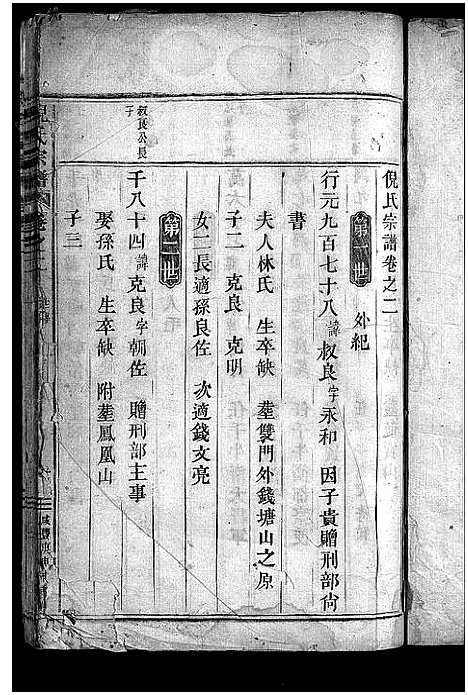 倪氏宗譜卷之二
第一世 外紀
行元九百七十八諱叔良字永和 因子貴贈刑部尙
書
夫人林氏 生卒缺 塟雙門外錢塘山之原
子二 克良 克明
女二長適孫良佐 次適錢文亮
第二世
叔良公長
子
千八十四諱克良字朝佐 贈刑部主事
娶孫氏 生卒缺 附塟鳳凰山
子三